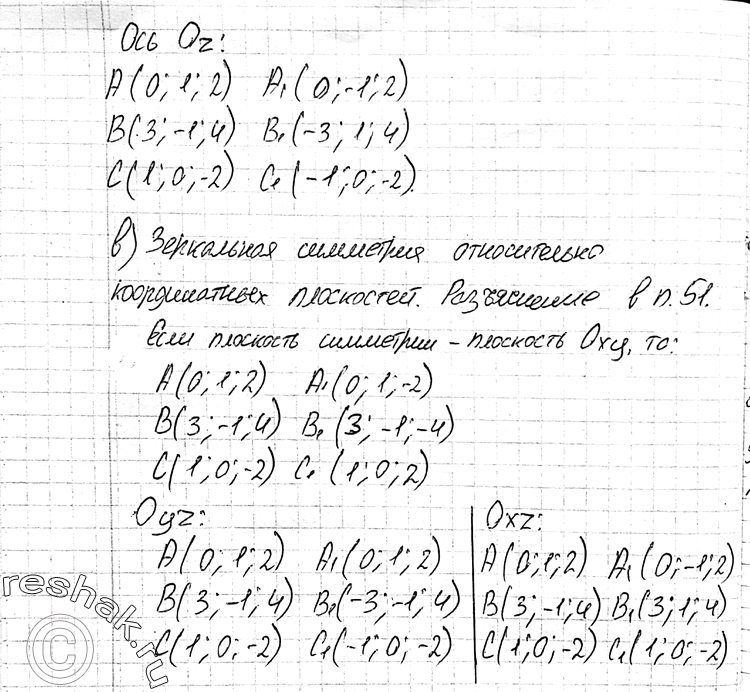 Ось Oz:
A(0; 1; 2) A₁(0; -1; 2)
B(3; -1; 4) B₁(-3; 1; 4)
C(1; 0; -2) C₁(-1; 0; -2).
в) Зеркальная симметрия относительно
координатных плоскостей. Разъяснение в п. 51.
Если плоскость симметрии - плоскость Oxy, то:
A(0; 1; 2) A₁(0; 1; -2)
B(3; -1; 4) B₁(3; -1; -4)
C(1; 0; -2) C₁(1; 0; 2)
Oyz:
A(0; 1; 2) A₁(0; 1; 2)
B(3; -1; 4) B₁(-3; -1; 4)
C(1; 0; -2) C₁(-1; 0; -2)
Oxz:
A(0; 1; 2) A₁(0; -1; 2)
B(3; -1; 4) B₁(3; 1; 4)
C(1; 0; -2) C₁(1; 0; -2)
reshak.ru